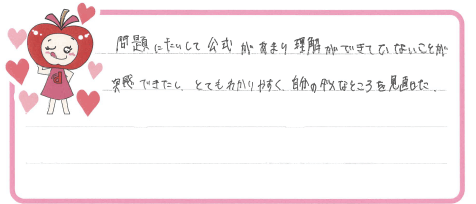 問題にたいして公式があまり理解ができていないことが
実感できたし、とてもわかりやすく自分のダメなところを見直せた.